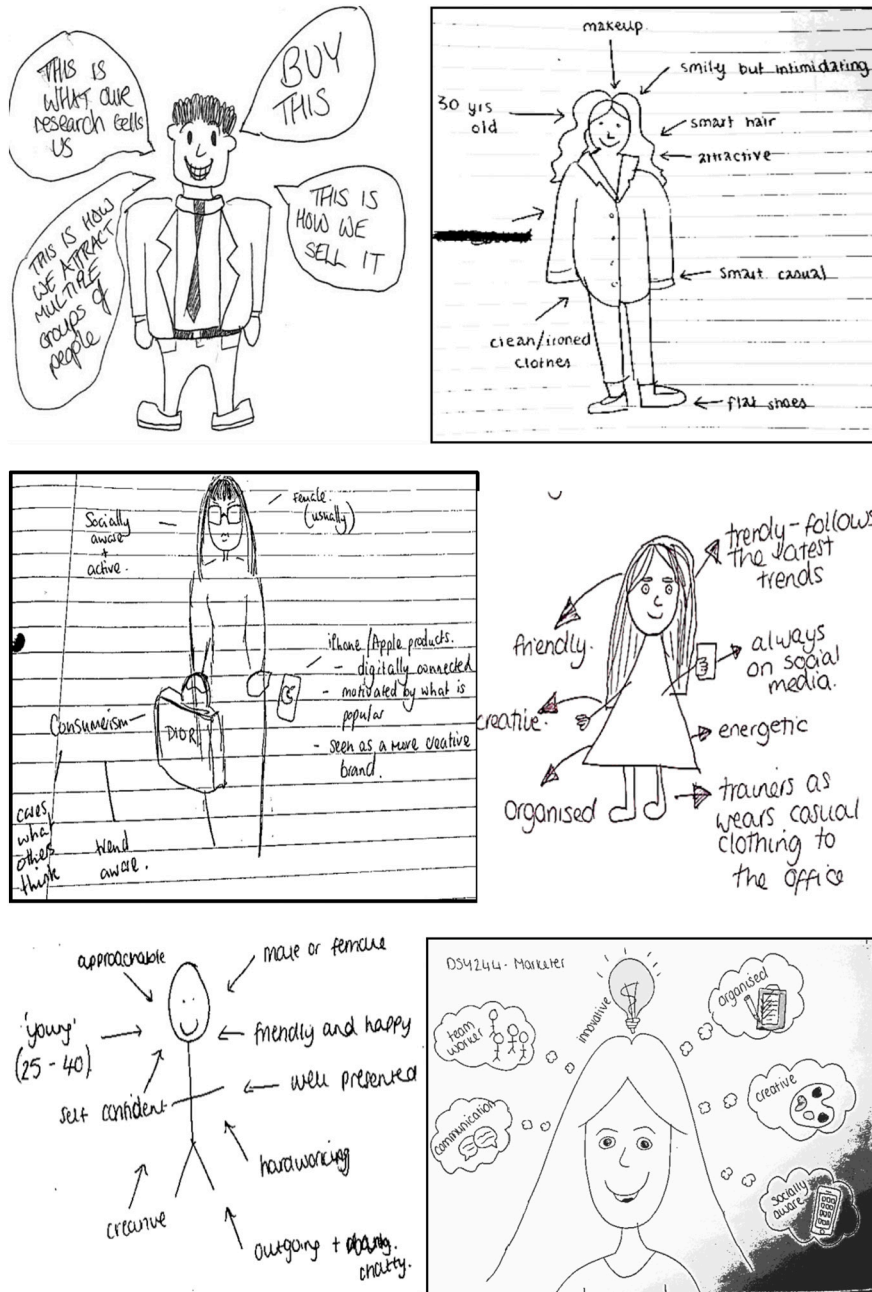 THIS IS
WHAT OUR
research tells
US
BUY
THIS
THIS IS HOW
WE ATTRACT
MULTIPLE
groups of
people
THIS IS
HOW WE
SELL IT
makeup
smily but intimidating
30 yrs
old
smart hair
attractive
smart casual
clean/ironed
clothes
flat shoes
Socially
aware
+
active.
female.
(usually)
iPhone/Apple products.
- digitally connected
- motivated by what is
popular
- seen as a more creative
brand.
Consumerism
DIOR
cares
what
others
think
trend
aware.
trendy-follows
the latest
trends
friendly.
always
on social
media.
creative.
energetic
organised
trainers as
wears casual
clothing to
the office
approachable
male or female
'young'
(25-40)
friendly and happy
self confident
well presented
hardworking
creative
outgoing +
chatty.
DSY244 - Marketer
innovative
organised
team
worker
creative
communication
socially
aware